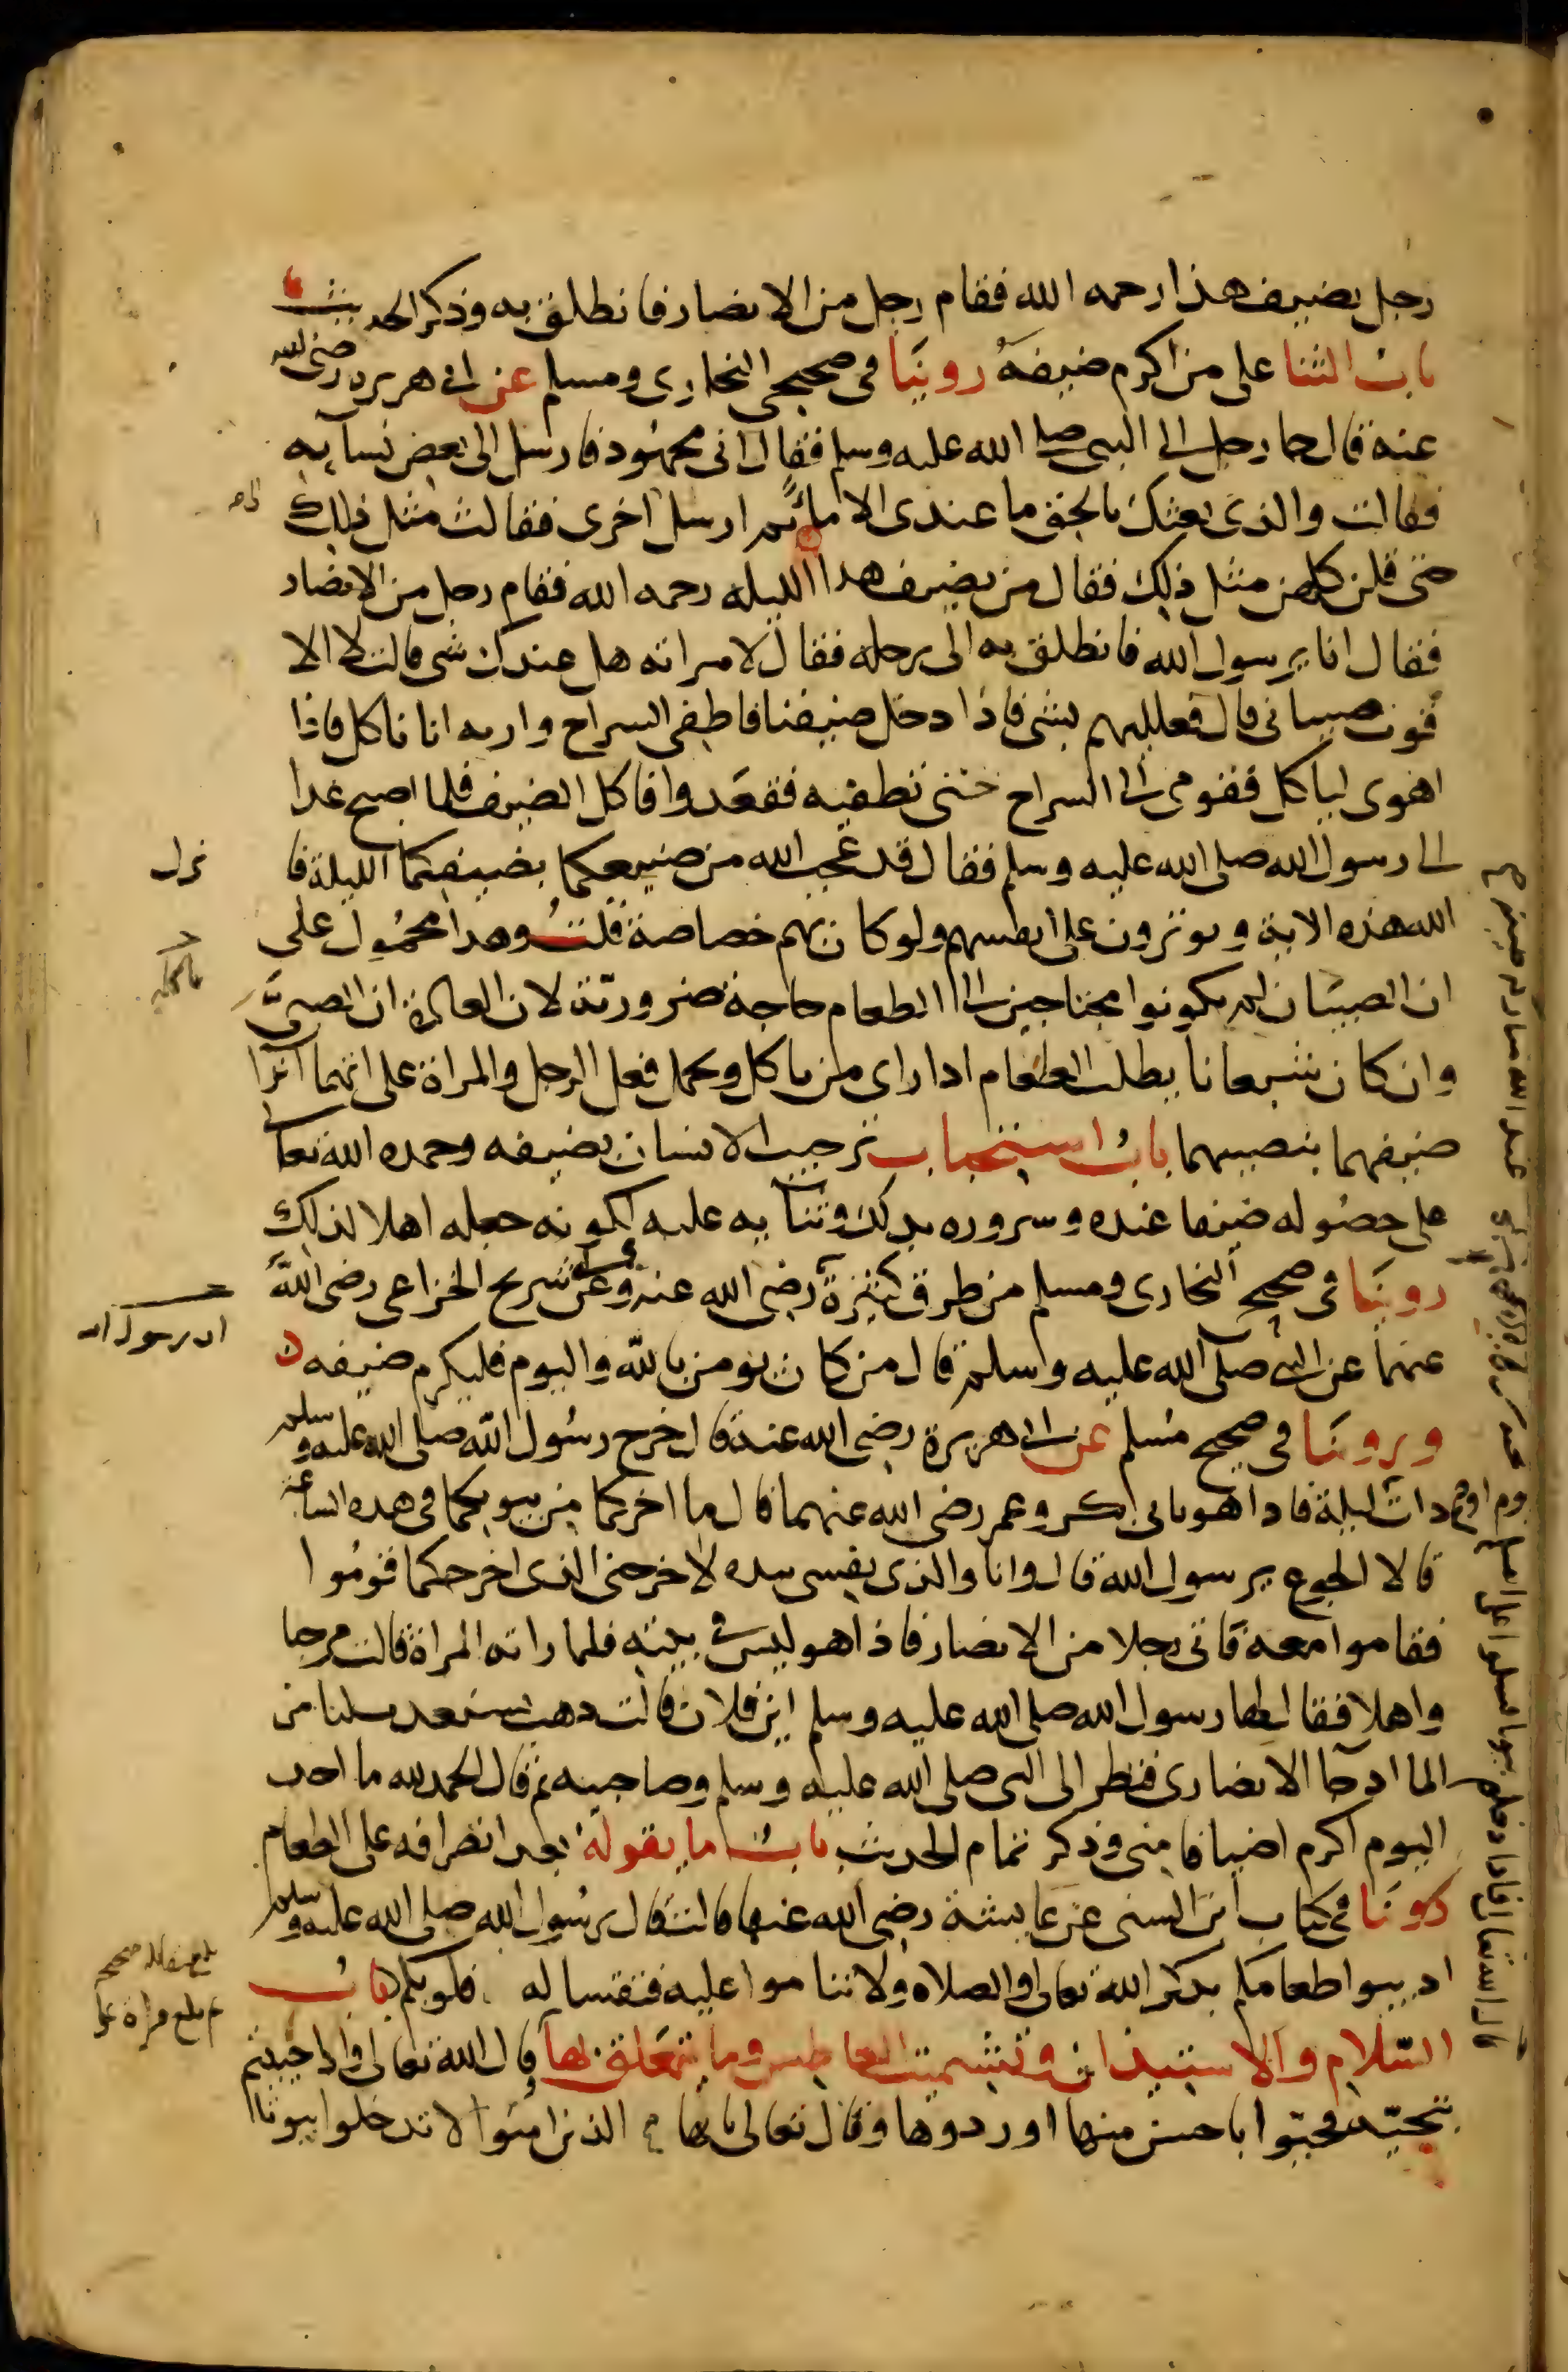 رجل يضيف هذا رحمه الله فقام رجل من الانصار فانطلق به وذكر الحديث
باب الثنا على من اكرم ضيفه روينا في صحيحي البخاري ومسلم عن ابي هريره رضي الله
عنه قال جا رجل الى النبي صلى الله عليه وسلم فقال اني مجهود فارسل الى بعض نسآيه
فقالت والذي بعثك بالحق ما عندي الا مآ ثم ارسل اخرى فقالت مثل ذلك
حتى قلن كلهن مثل ذلك فقال من يضيف هذا الليله رحمه الله فقام رجل من الانصار
فقال انا يرسول الله فانطلق به الى رحله فقال لامراته هل عندك شي قالت لا الا
قوت صبياني قال فعلليهم بشي فاذا دخل ضيفنا فاطفي السراج واريه انا ناكل فاذا
اهوى لياكل فقومي الى السراج حتى تطفيه فقعدوا فاكل الضيف فلما اصبح غدا
الى رسول الله صلى الله عليه وسلم فقال قد عجب الله من صنيعكما بضيفكما الليلة فا
نزل
الله هذه الاية ويوثرون على انفسهم ولو كان بهم خصاصة قلت وهذا محمول على
ان الصبيان لم يكونوا محتاجين الى الطعام حاجة ضرورية لان العادة ان الصبي
وان كان شبعانا يطلب الطعام اذا راى من ياكل ويحمل فعل الرجل والمراة على انهما آثرا
ضيفهما بنصيبهما باب استحباب ترحيب الانسان بضيفه وحمده الله تعالى
على حصوله ضيفا عنده وسروره بذلك وثنآيه عليه لكونه جعله اهلا لذلك
روينا في صحيح البخاري ومسلم من طرق كثيرة رضي الله عنه وعن شريح الخزاعي رضي الله
عنهما عن النبي صلى الله عليه وسلم قال من كان يومن بالله واليوم فليكرم ضيفه
وروينا في صحيح مسلم عن ابي هريرة رضي الله عنه قال خرج رسول الله صلى الله عليه وسلم
ذات ليلة فاذا هو بابي بكر وعمر رضي الله عنهما قال ما اخرجكما من بيوتكما في هذه الساعة
قالا الجوع يرسول الله قال وانا والذي نفسي بيده لاخرجني الذي اخرجكما قوموا
فقاموا معه فاتى رجلا من الانصار فاذا هو ليس في بيته فلما راته المراة قالت مرحبا
واهلا فقال لها رسول الله صلى الله عليه وسلم اين فلان قالت ذهب يستعذب لنا من
الما اذ جآ الانصاري فنظر الى النبي صلى الله عليه وسلم وصاحبيه ثم قال الحمد لله ما احد
اليوم اكرم اضيافا مني وذكر تمام الحديث باب ما يقوله بعد انصرافه على الطعام
روينا في كتاب ابن السني عن عايشة رضي الله عنها قالت قال رسول الله صلى الله عليه وسلم
اذيبوا طعامكم بذكر الله تعالى والصلاه ولا تناموا عليه فتقسا له قلوبكم باب
السلام والاستيذان وتشميت العاطس وما يتعلق بها قال الله تعالى واذا حييتم
بتحية فحيوا باحسن منها او ردوها وقال تعالى يايها الذين امنوا لا تدخلوا بيوتا